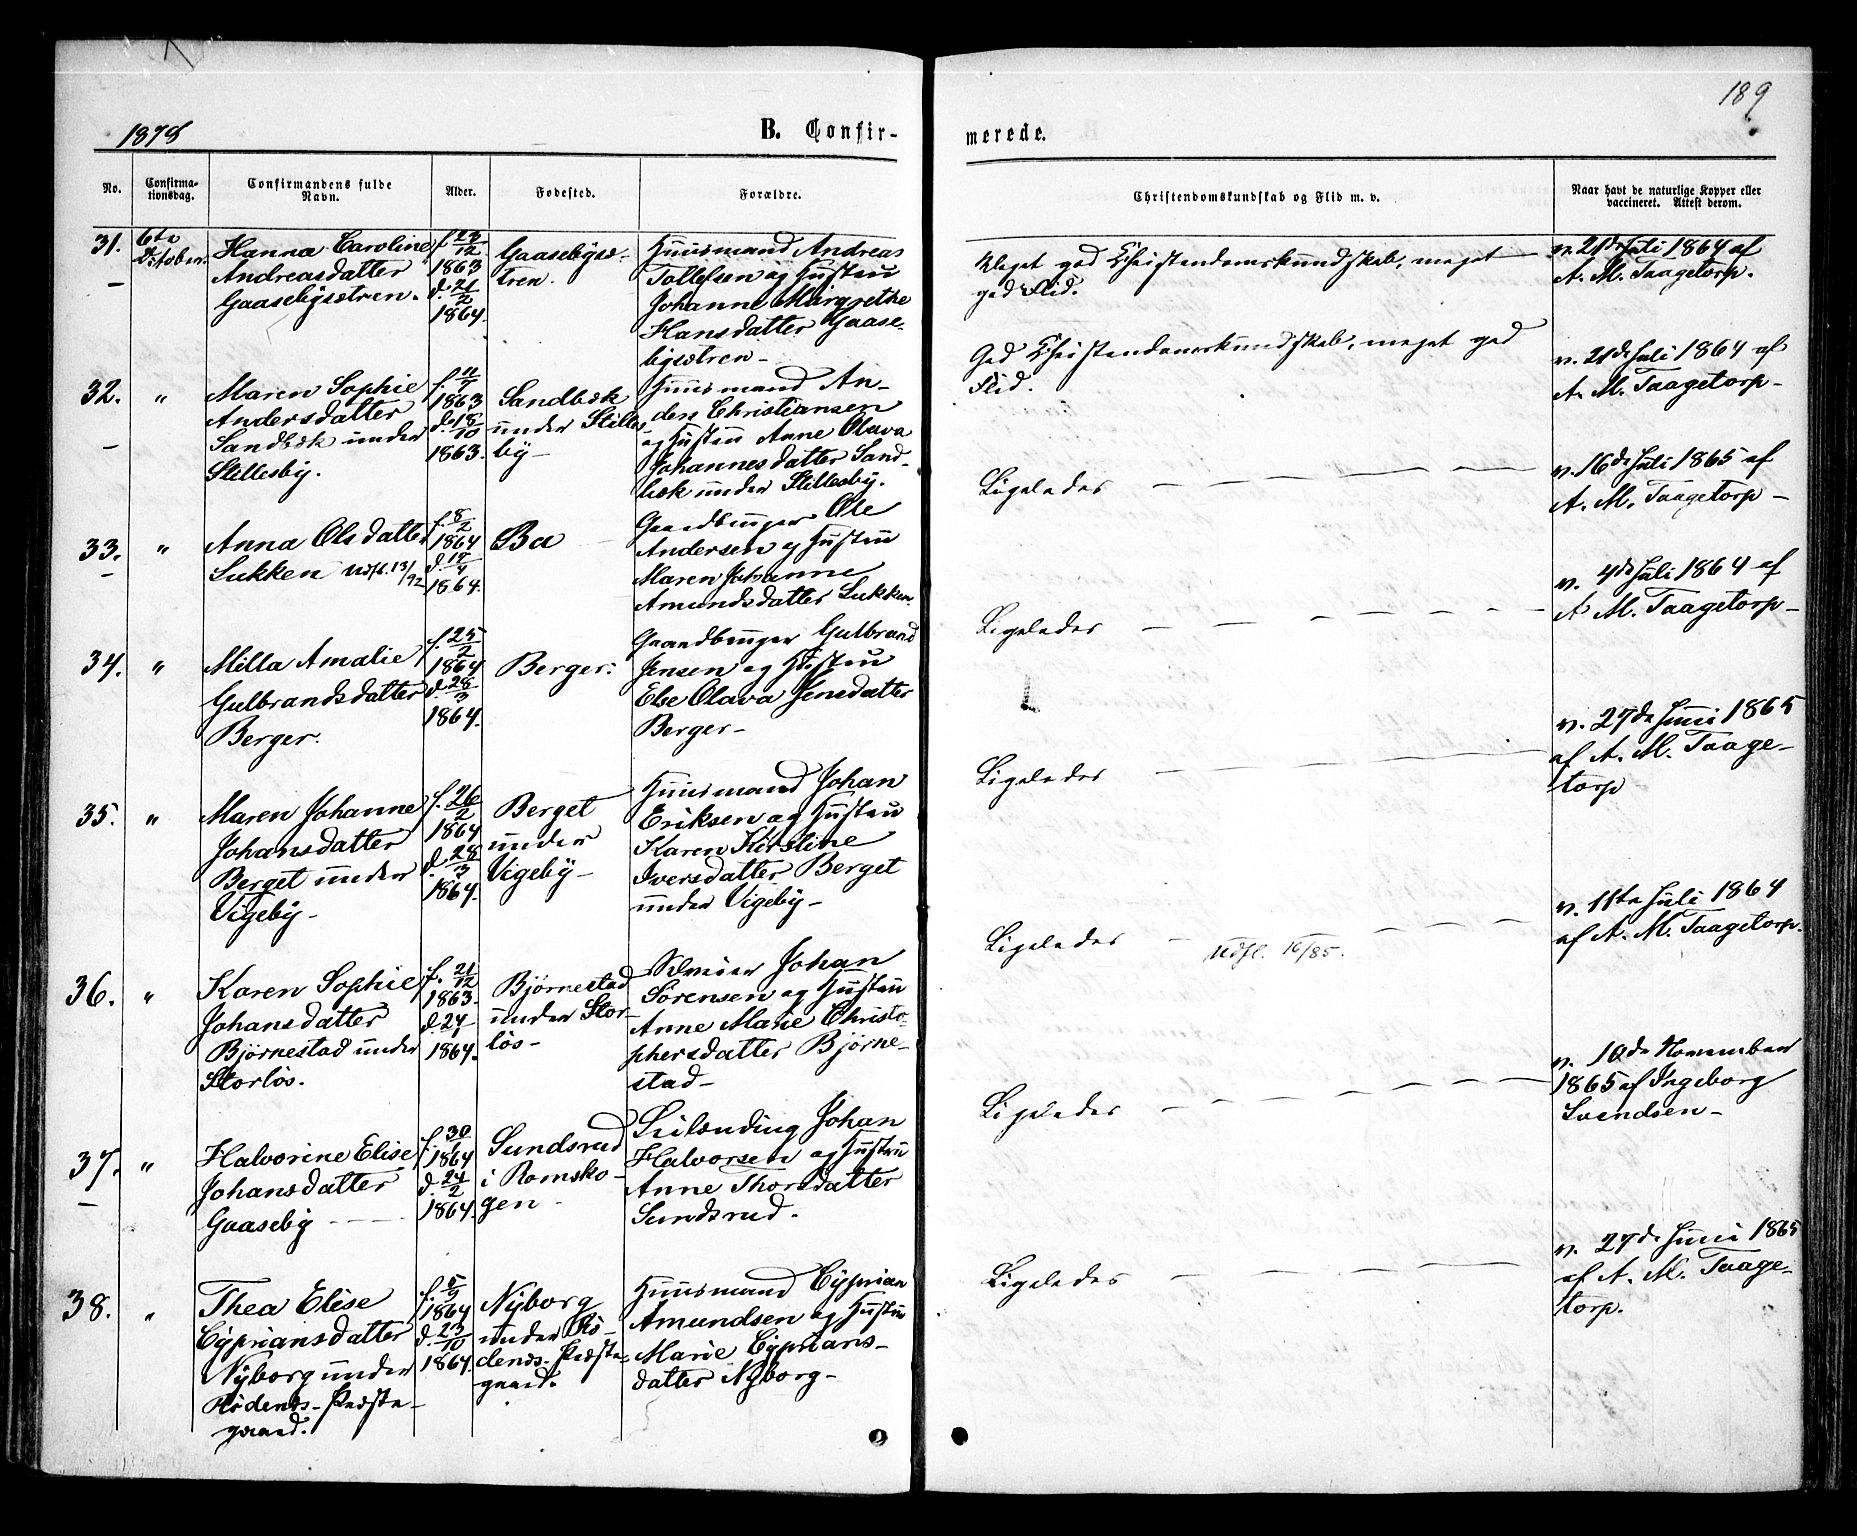 189
1878
B. Confir-
merede.
No.
Confirma-
tionsdag.
Confirmandens fulde
Navn.
Alder.
Fødested.
Forældre.
Christendomskundskab og Flid m. v.
Naar havt de naturlige Kopper eller
vaccineret. Attest derom.
31.
6te
October.
Hanna Caroline
Andreasdatter
Gaasebysætren.
f. 23/12
1863
d. 21/2
1864.
Gaasebysæ-
tren.
Huusmand Andreas
Tollefsen og Hustru
Johanne Margrethe
Hansdatter Gaase-
bysætren-
Meget god Christendomskundskab, meget
god Flid.
v. 21de Juli 1864 af
A. M. Taagetorp.
32.
"
Maren Sophie
Andersdatter
Sandbæk under
Stillesby.
1863
d. 18/10
1863.
Sandbæk
under Stilles-
by-
Huusmand An-
ders Christiansen
og Hustru Anne Olava
Johannesdatter Sand-
bæk under Stillesby.
God Christendomskundskab, meget god
Flid.
v. 21de Juli 1864 af
A. M. Taagetorp-
33.
"
Anna Olsdatter
Lukken Udfl. 13/92
f. 8/2
1864
1864.
Bø
Gaardbruger Ole
Andersen og Hustru
Maren Johanne
Amundsdatter Lukken.
Ligeledes
v. 16de Juli 1865 af
A. M. Taagetorp-
34.
"
Milla Amalie
Gulbrandsdatter
Berger.
f. 25/2
1864
d. 28/3
1864.
Berger.
Gaardbruger Gulbrand
Jensen og Hustru
Else Olava Jensdatter
Berger-
Ligeledes
v. 4de Juli 1864 af
A. M. Taagetorp-
35.
"
Maren Johanne
Johansdatter
Berget under
Vigeby-
f. 26/2
1864
d. 28/3
1864.
Berget
under
Vigeby-
Huusmand Johan
Eriksen og Hustru
Karen Kirstine
Iversdatter Berget
under Vigeby-
Ligeledes
v. 27de Juni 1865
af A. M. Taage-
torp
36.
"
Karen Sophie
Johansdatter
Bjørnestad under
Storløs.
f. 21/12
1863.
d. 24/1
1864.
Bjørnestad
under Stor-
løs-
Johan
Sørensen og Hustru
Anne Marie Christo-
phersdatter Bjørne-
stad-
Ligeledes
Udfl. 16/85.
v. 11te Juli 1864
af A. M. Taagetorp.
37.
"
Halvorine Elise
Johansdatter
Gaaseby
f. 30/1
1864
d. 24/2
1864.
Sundsrud
i Romsko-
gen-
Leilænding Johan
Halvorsen og Hustru
Anne Thorsdatter
Sundsrud.
Ligeledes
v. 10de November
1865 af Ingeborg
Svendsen-
38.
"
Thea Elise
Cypriansdatter
Nyborg under
Rødenes-Præste-
gaard.
f. 5/9
1864
d. 23/10
1864.
Nyborg
under Rø-
denes-Præste-
gaard.
Huusmand Cyprian
Amundsen og Hustru
Marie Cyprians-
datter Nyborg-
Ligeledes
v. 27de Juni 1865
af A. M. Taage-
torp.